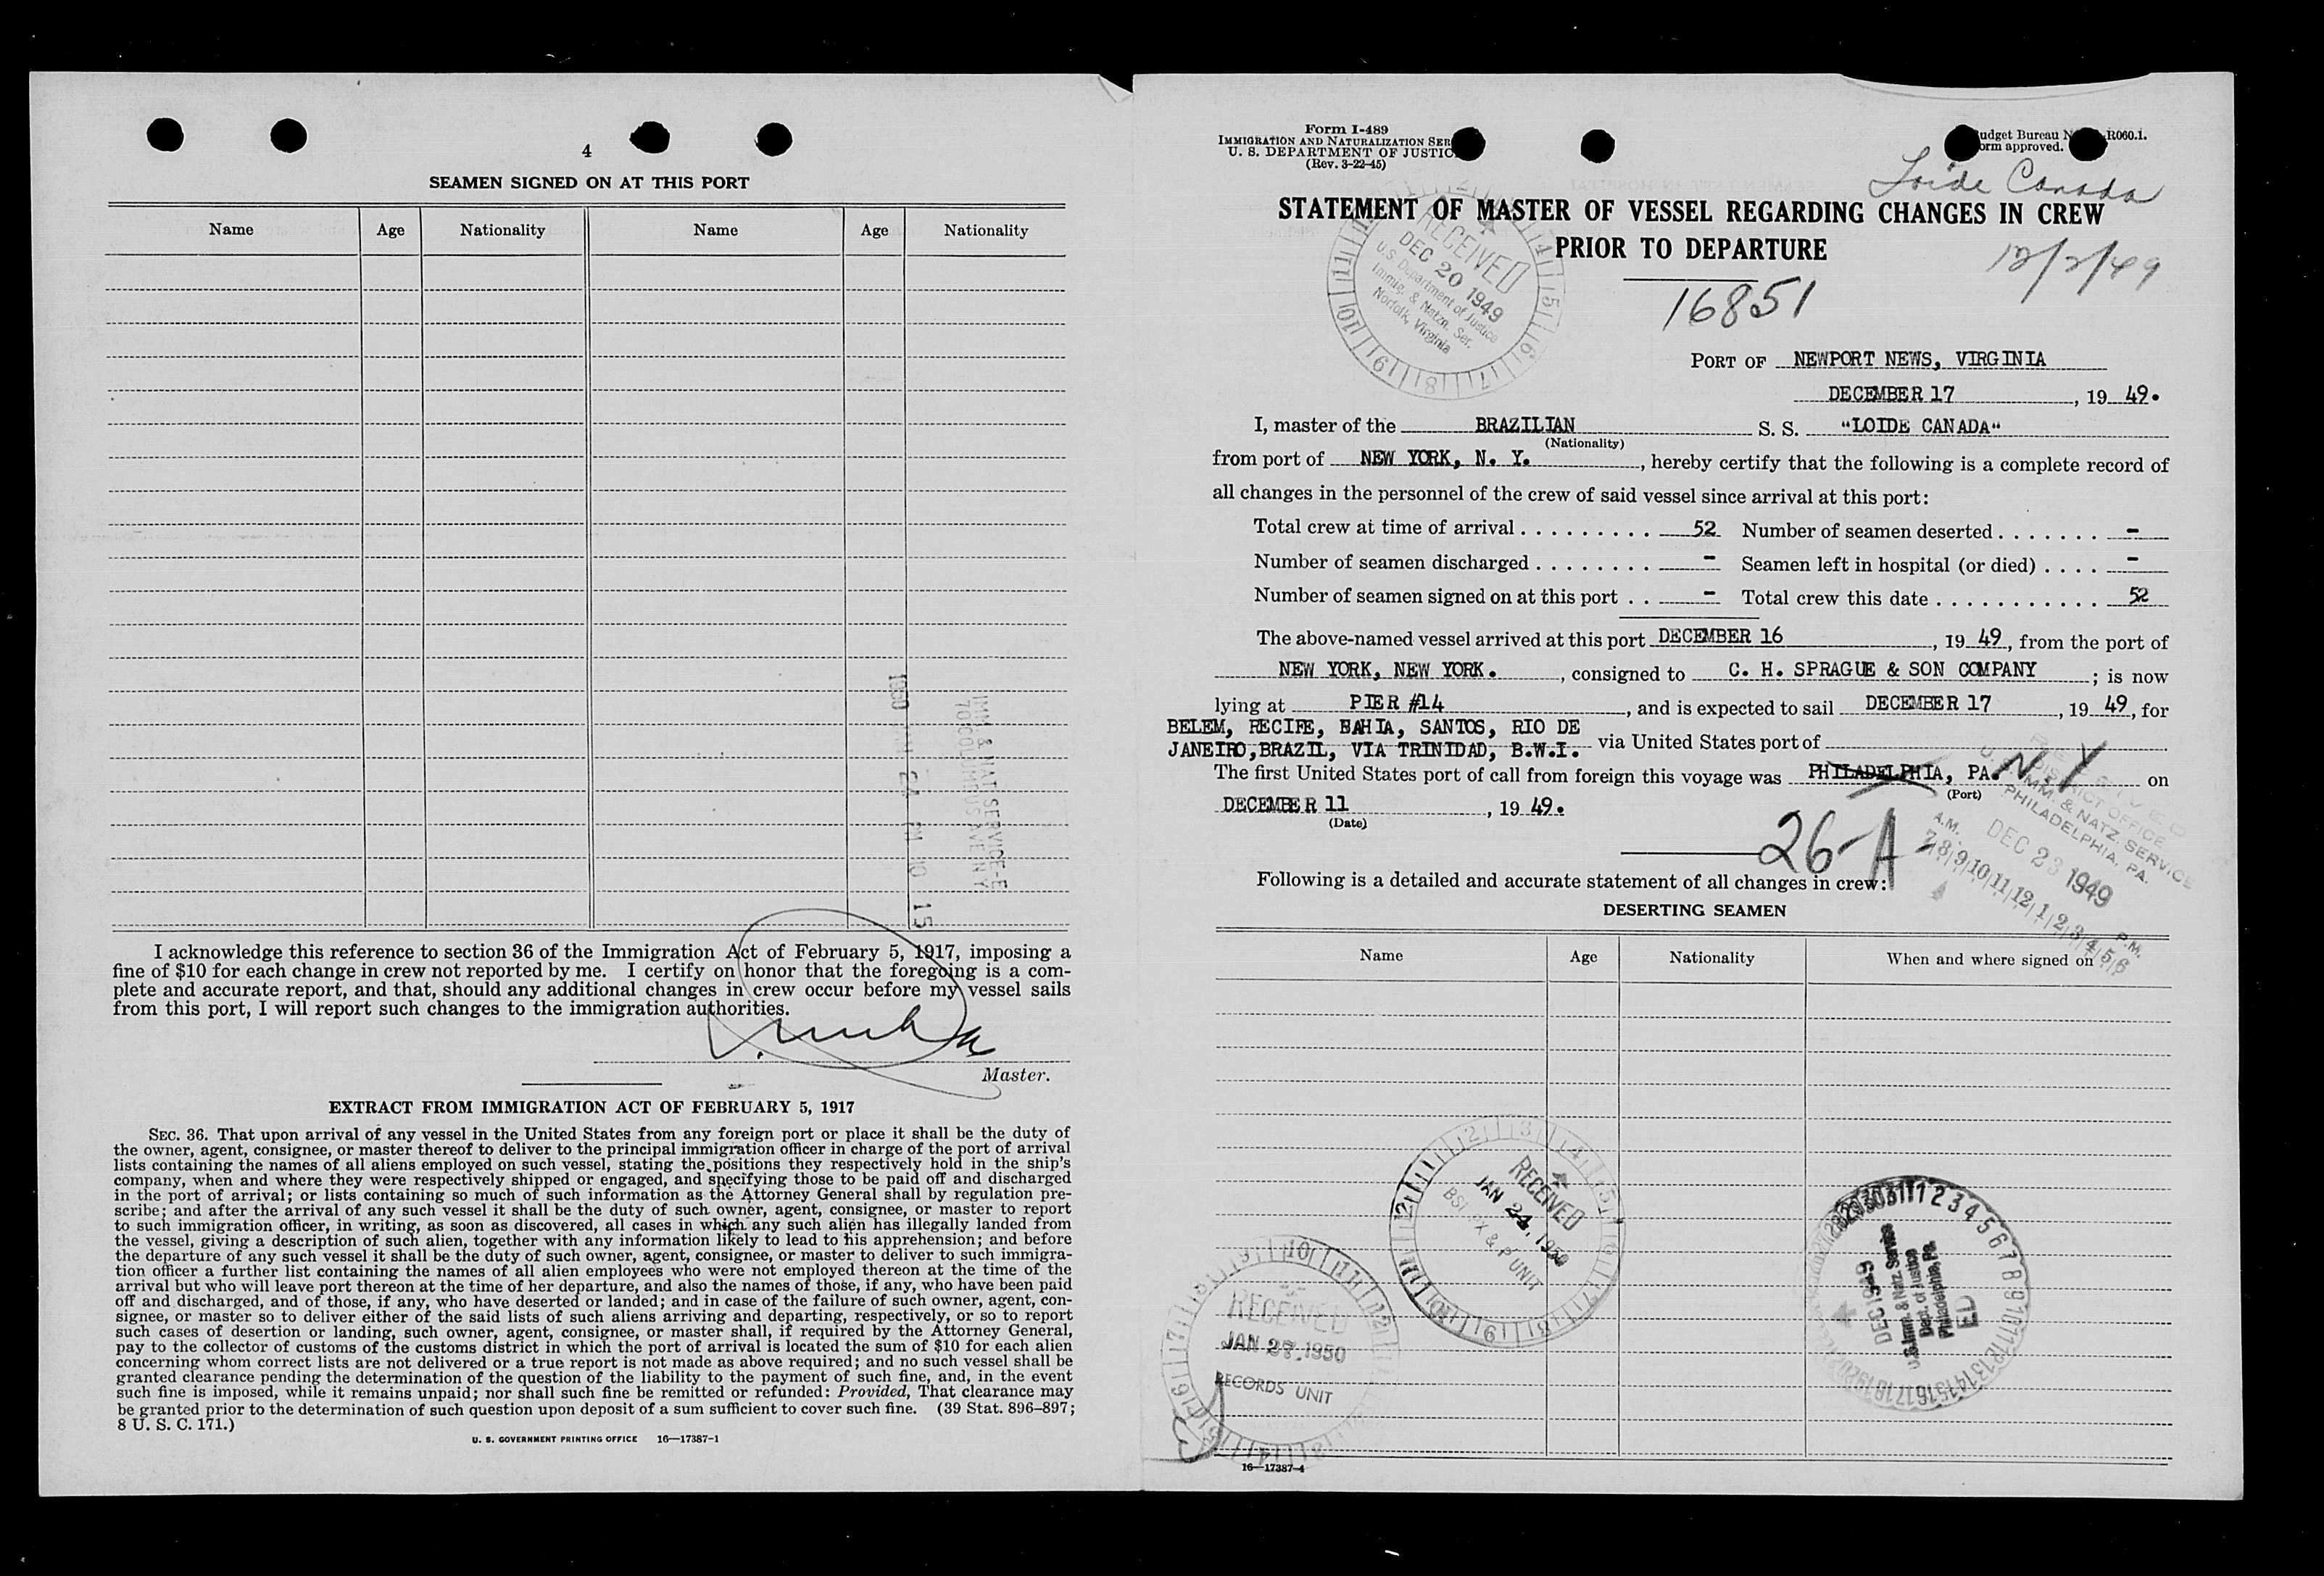 4
SEAMEN SIGNED ON AT THIS PORT
Name Age Nationality Name Age Nationality
IMM & NAT SERVICE-E
70 COLUMBUS AVE N Y
1950 JAN 24 PM 10 15
I acknowledge this reference to section 36 of the Immigration Act of February 5, 1917, imposing a
fine of $10 for each change in crew not reported by me. I certify on honor that the foregoing is a com-
plete and accurate report, and that, should any additional changes in crew occur before my vessel sails
from this port, I will report such changes to the immigration authorities.
Master.
EXTRACT FROM IMMIGRATION ACT OF FEBRUARY 5, 1917
SEC. 36. That upon arrival of any vessel in the United States from any foreign port or place it shall be the duty of
the owner, agent, consignee, or master thereof to deliver to the principal immigration officer in charge of the port of arrival
lists containing the names of all aliens employed on such vessel, stating the positions they respectively hold in the ship's
company, when and where they were respectively shipped or engaged, and specifying those to be paid off and discharged
in the port of arrival; or lists containing so much of such information as the Attorney General shall by regulation pre-
scribe; and after the arrival of any such vessel it shall be the duty of such owner, agent, consignee, or master to report
to such immigration officer, in writing, as soon as discovered, all cases in which any such alien has illegally landed from
the vessel, giving a description of such alien, together with any information likely to lead to his apprehension; and before
the departure of any such vessel it shall be the duty of such owner, agent, consignee, or master to deliver to such immigra-
tion officer a further list containing the names of all alien employees who were not employed thereon at the time of the
arrival but who will leave port thereon at the time of her departure, and also the names of those, if any, who have been paid
off and discharged, and of those, if any, who have deserted or landed; and in case of the failure of such owner, agent, con-
signee, or master so to deliver either of the said lists of such aliens arriving and departing, respectively, or so to report
such cases of desertion or landing, such owner, agent, consignee, or master shall, if required by the Attorney General,
pay to the collector of customs of the customs district in which the port of arrival is located the sum of $10 for each alien
concerning whom correct lists are not delivered or a true report is not made as above required; and no such vessel shall be
granted clearance pending the determination of the question of the liability to the payment of such fine, and, in the event
such fine is imposed, while it remains unpaid; nor shall such fine be remitted or refunded: Provided, That clearance may
be granted prior to the determination of such question upon deposit of a sum sufficient to cover such fine. (39 Stat. 896–897;
8 U. S. C. 171.)
U. S. GOVERNMENT PRINTING OFFICE 16—17387-1
Form I-489
IMMIGRATION AND NATURALIZATION SER
U. S. DEPARTMENT OF JUSTIC
(Rev. 3-22-45)
udget Bureau N R060.1.
orm approved.
Loide Canada
STATEMENT OF MASTER OF VESSEL REGARDING CHANGES IN CREW
PRIOR TO DEPARTURE
12/2/49
16851
RECEIVED
DEC 20 1949
U.S. Department of Justice
Immig. & Natzn. Ser.
Norfolk, Virginia
PORT OF NEWPORT NEWS, VIRGINIA
DECEMBER 17, 19 49.
I, master of the BRAZILIAN S. S. "LOIDE CANADA"
(Nationality)
from port of NEW YORK, N. Y., hereby certify that the following is a complete record of
all changes in the personnel of the crew of said vessel since arrival at this port:
Total crew at time of arrival . . . . . . . . . . 52 Number of seamen deserted . . . . . . . -
Number of seamen discharged . . . . . . . . - Seamen left in hospital (or died) . . . . -
Number of seamen signed on at this port . . - Total crew this date . . . . . . . . . . . 52
The above-named vessel arrived at this port DECEMBER 16, 19 49, from the port of
NEW YORK, NEW YORK., consigned to C. H. SPRAGUE & SON COMPANY; is now
lying at PIER #14, and is expected to sail DECEMBER 17, 19 49, for
BELEM, RECIFE, BAHIA, SANTOS, RIO DE
JANEIRO, BRAZIL, VIA TRINIDAD, B.W.I. via United States port of
The first United States port of call from foreign this voyage was PHILADELPHIA, PA. N.Y on
(Port)
DECEMBER 11, 19 49.
(Date)
26-A-
RECEIVED
DISTRICT OFFICE
U. S. IMM. & NATZ. SERVICE
PHILADELPHIA, PA.
DEC 23 1949
A.M. P.M.
7 8 9 10 11 12 1 2 3 4 5 6
Following is a detailed and accurate statement of all changes in crew:
DESERTING SEAMEN
Name Age Nationality When and where signed on
RECEIVED
JAN 24, 1950
BSI EX & P UNIT
RECEIVED
JAN 27 1950
RECORDS UNIT
DEC 1949
U.S. Imm. & Natz. Service
Dept. of Justice
Philadelphia, Pa.
16—17387-4